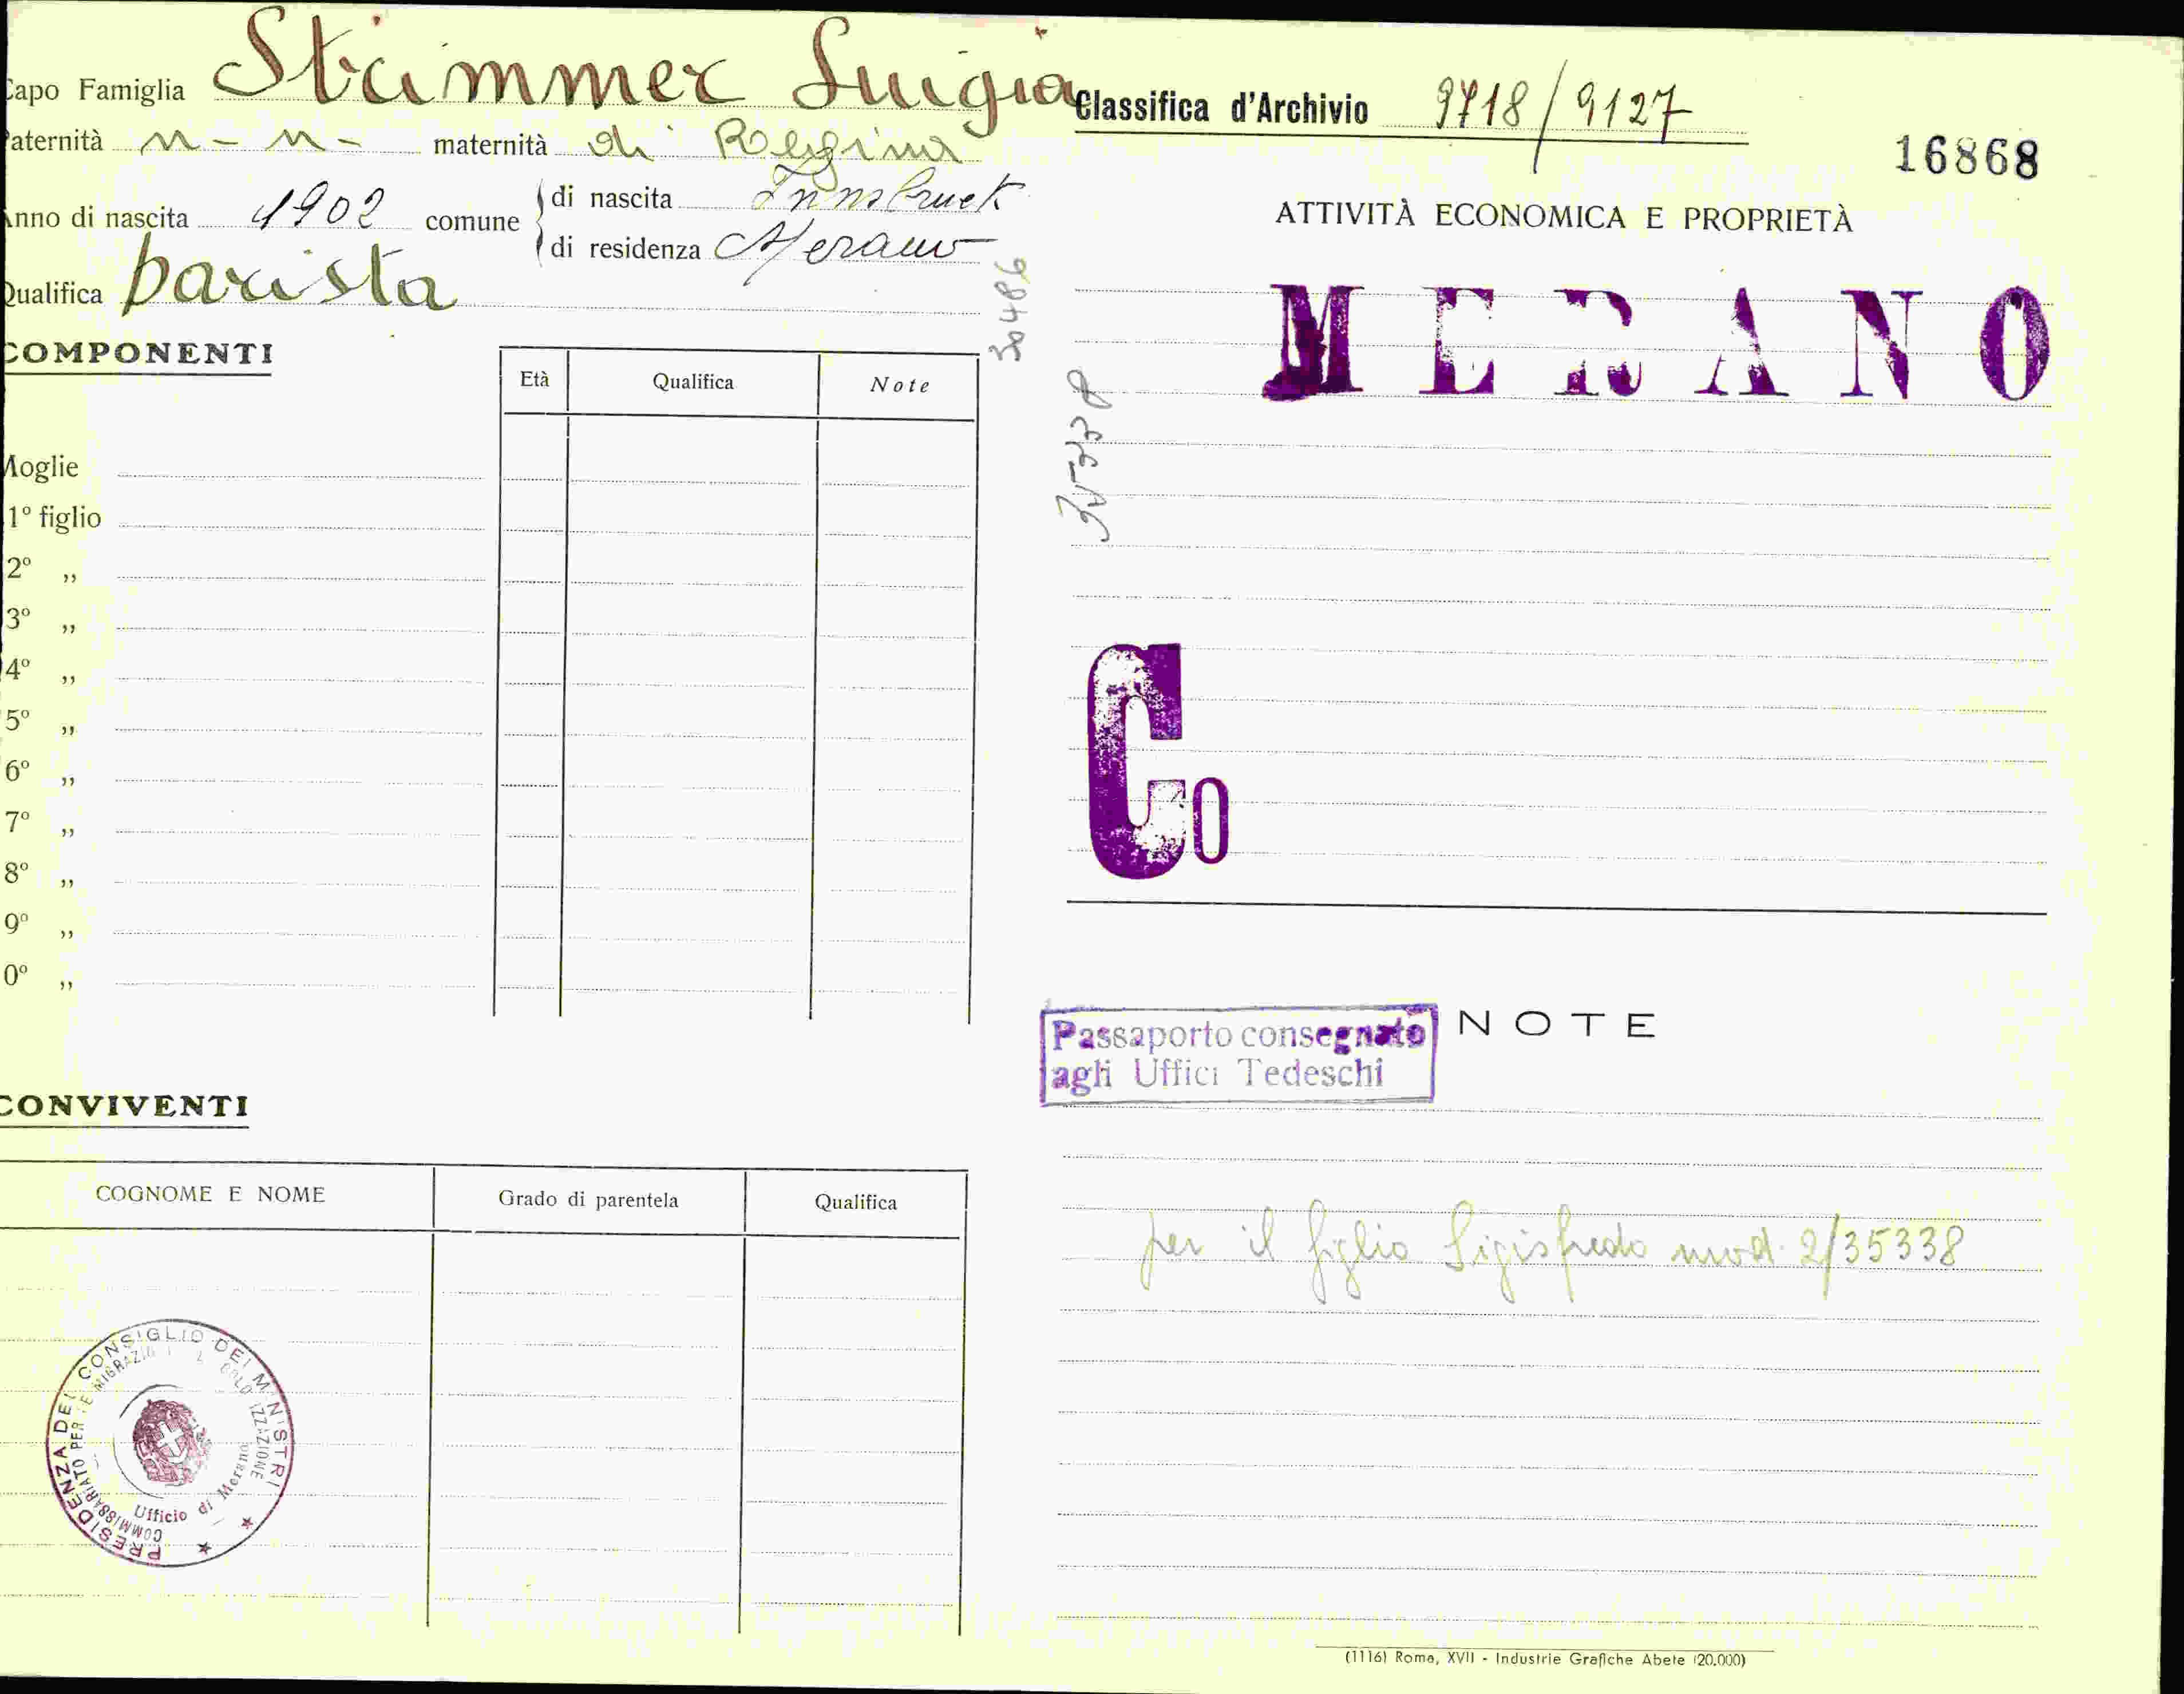 Capo Famiglia Strimmer Luigia
Paternità n - n - maternità di Regina
Anno di nascita 1902 comune di nascita Innsbruck
di residenza Merano
Qualifica barista
COMPONENTI
Età Qualifica Note
Moglie
1º figlio
2º ,,
3º ,,
4º ,,
5º ,,
6º ,,
7º ,,
8º ,,
9º ,,
0º ,,
CONVIVENTI
COGNOME E NOME Grado di parentela Qualifica
PRESIDENZA DEL CONSIGLIO DEI MINISTRI
COMMISSARIATO PER LE MIGRAZIONI E LA COLONIZZAZIONE
Ufficio di Merano
30486
35338
Classifica d'Archivio 9718/9127
16868
ATTIVITÀ ECONOMICA E PROPRIETÀ
MERANO
Co
Passaporto consegnato
agli Uffici Tedeschi
NOTE
per il figlio Sigisfredo mod. 2/35338
(1116) Roma, XVII - Industrie Grafiche Abete (20.000)